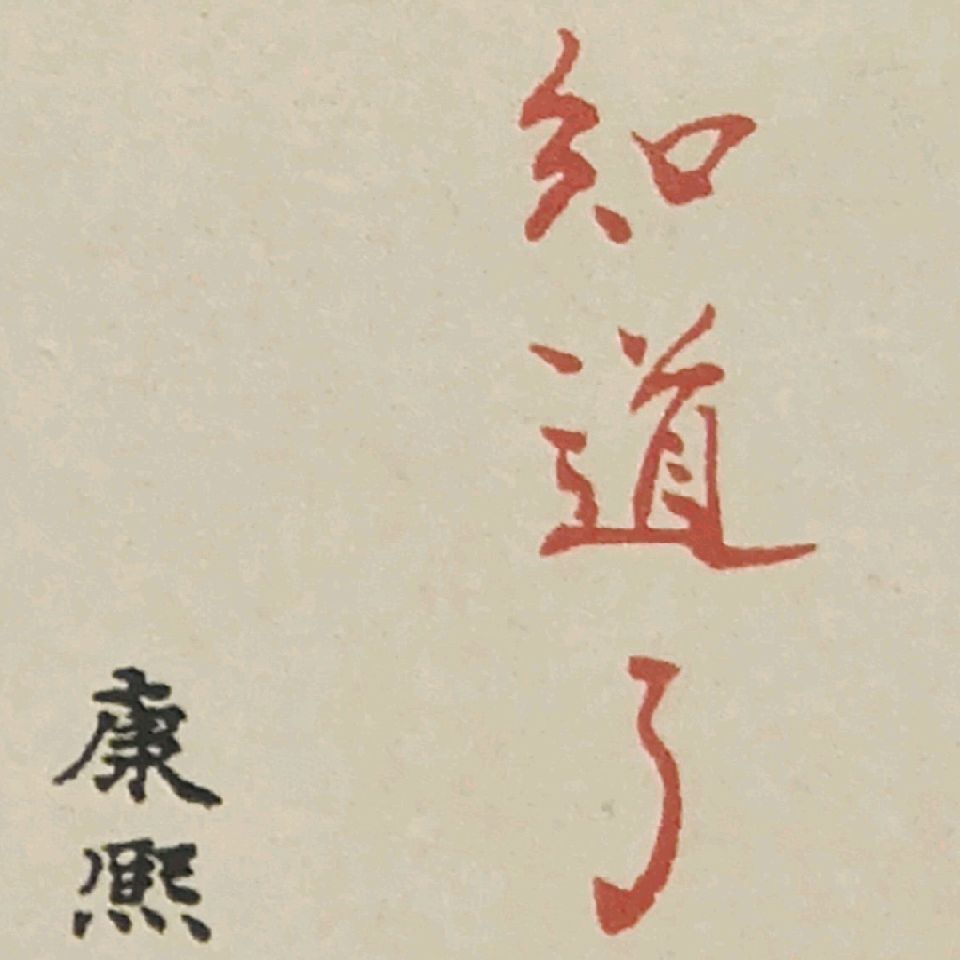 知道了
康熙